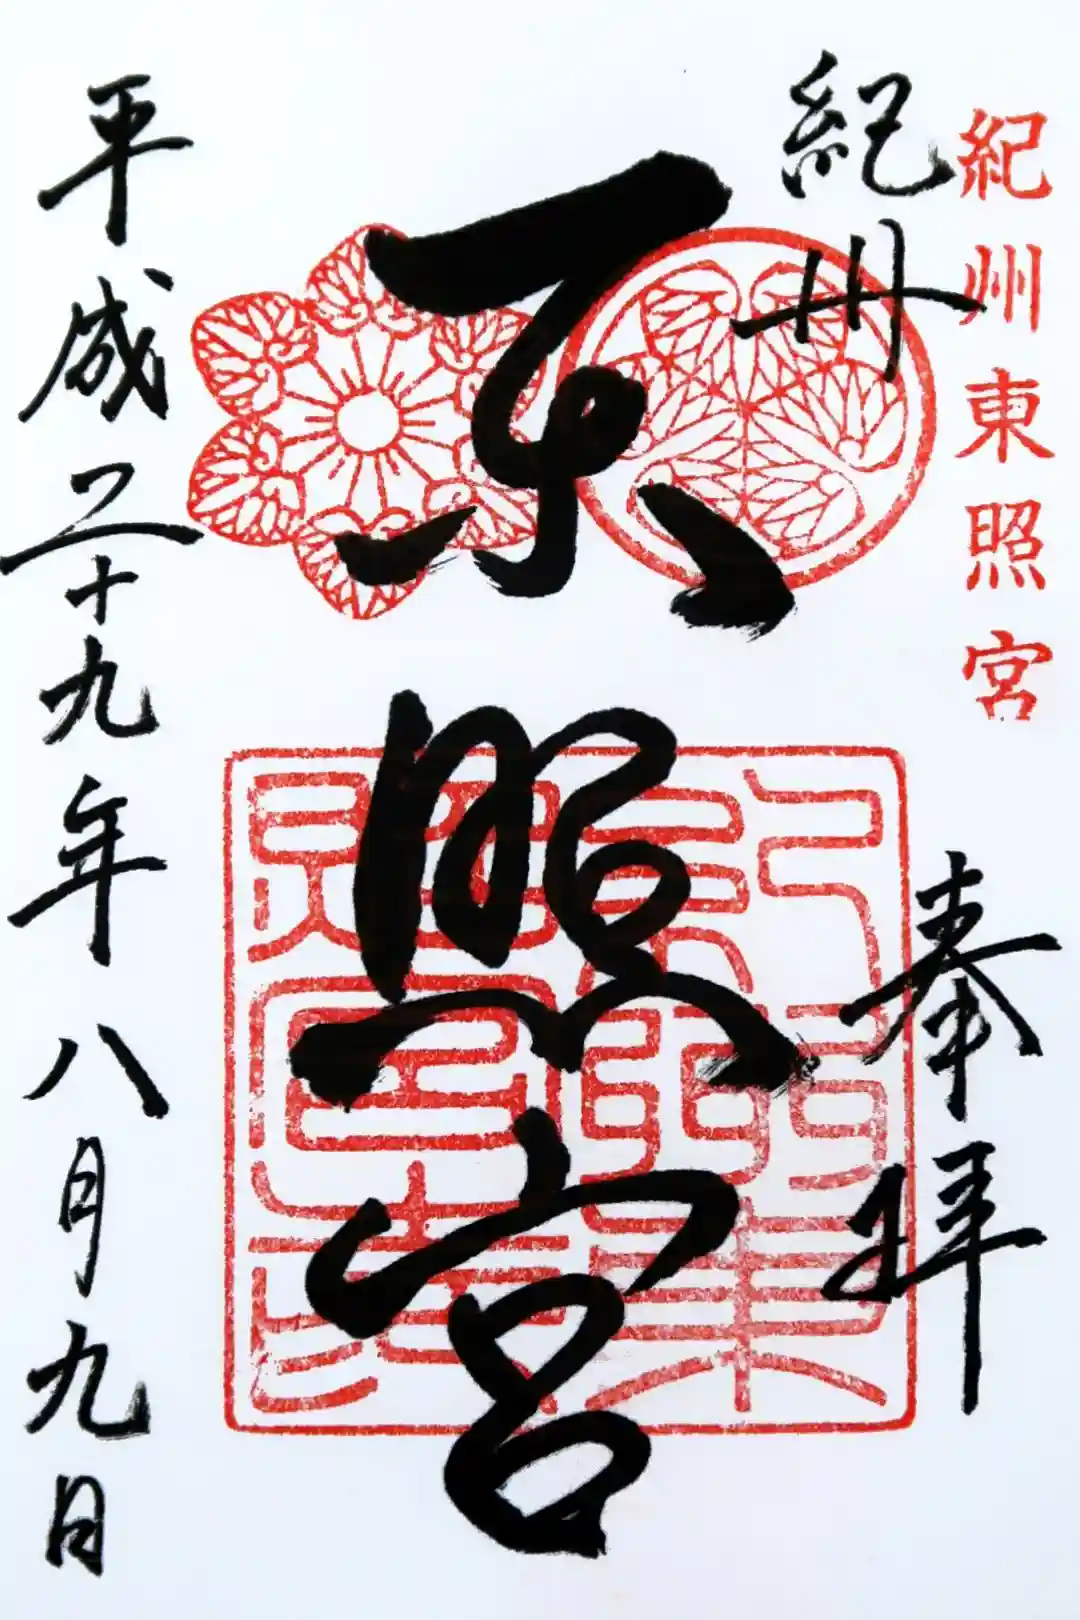 紀州東照宮
紀州
奉拝
東照宮
平成二十九年八月九日